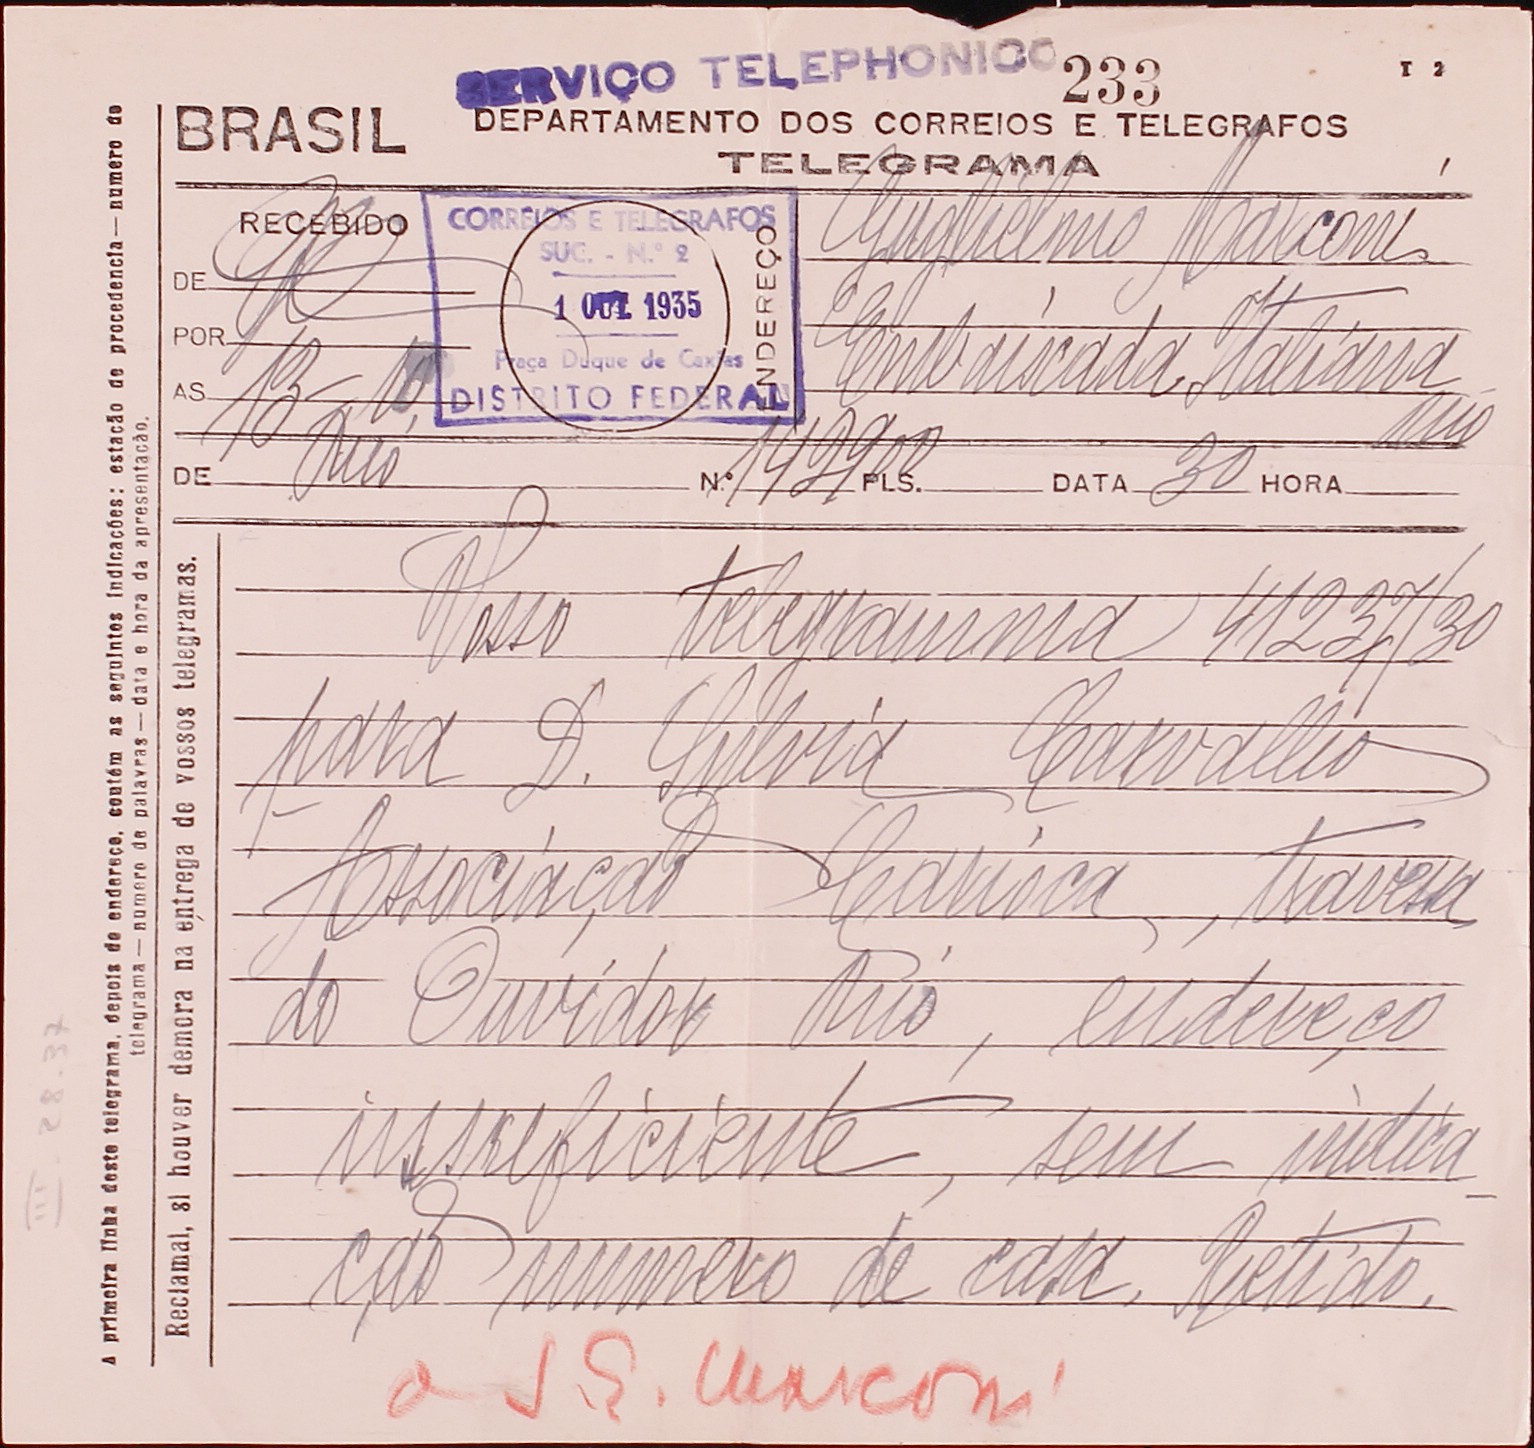 SERVIÇO TELEPHONICO
233
I 2
BRASIL
DEPARTAMENTO DOS CORREIOS E TELEGRAFOS
TELEGRAMA
RECEBIDO
DE
POR
AS 13-10
CORREIOS E TELEGRAFOS
SUC. - N.º 2
1 OUT. 1935
Praça Duque de Caxias
DISTRITO FEDERAL
ENDEREÇO
Guglielmo Marconi
Embaiscada Italiana
Rio
DE Rio N.º 142900 PLS. DATA 30 HORA
Vosso telegramma 41237/30
para D. Sylvia Carvalho
Associação Carioca, travessa
do Ouvidor Rio, endereço
insuficiente, sem indica
ção numero de casa. Retido.
a S.E. Marconi
A primeira linha deste telegrama, depois do endereço, contém as seguintes indicações: estacão de procedencia — numero do
telegrama — numero de palavras — data e hora da apresentação.
Reclamai, si houver demora na entrega de vossos telegramas.
III.28.37